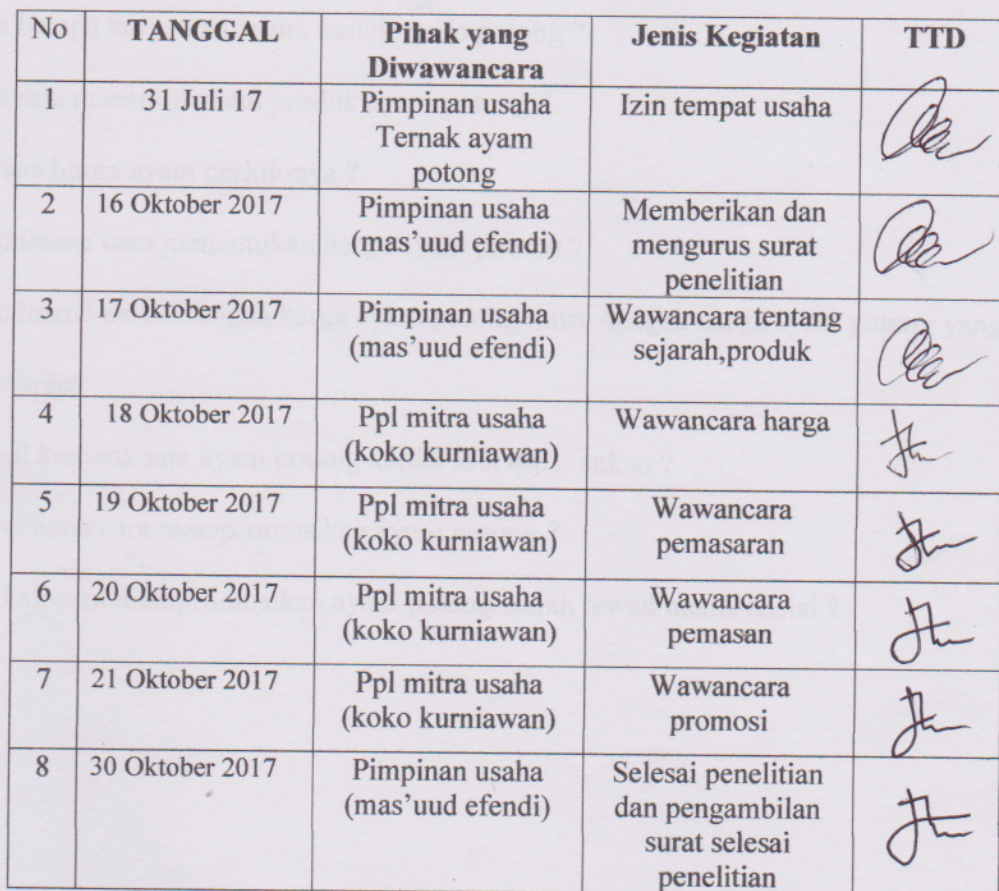 No TANGGAL Pihak yang Diwawancara Jenis Kegiatan TTD
1 31 Juli 17 Pimpinan usaha Ternak ayam potong Izin tempat usaha
2 16 Oktober 2017 Pimpinan usaha (mas'uud efendi) Memberikan dan mengurus surat penelitian
3 17 Oktober 2017 Pimpinan usaha (mas'uud efendi) Wawancara tentang sejarah,produk
4 18 Oktober 2017 Ppl mitra usaha (koko kurniawan) Wawancara harga
5 19 Oktober 2017 Ppl mitra usaha (koko kurniawan) Wawancara pemasaran
6 20 Oktober 2017 Ppl mitra usaha (koko kurniawan) Wawancara pemasan
7 21 Oktober 2017 Ppl mitra usaha (koko kurniawan) Wawancara promosi
8 30 Oktober 2017 Pimpinan usaha (mas'uud efendi) Selesai penelitian dan pengambilan surat selesai penelitian